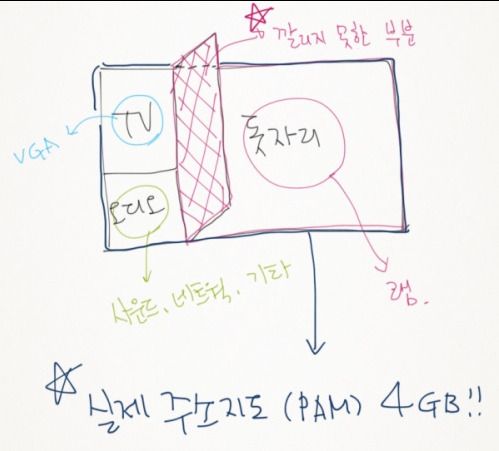 ☆ 깔리지 못한 부분
TV
VGA
돗자리
오디오
사운드, 네트웍, 기타
램.
☆ 실제 주소지도 (PAM) 4GB!!